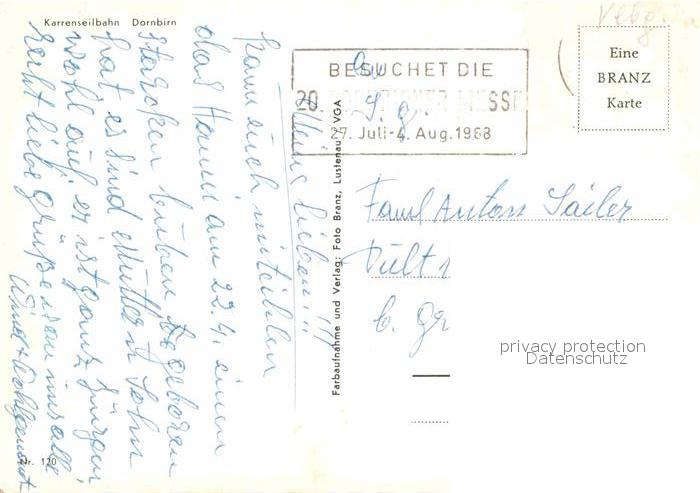 Karrenseilbahn Dornbirn
Meine Lieben!!!
kann euch mitteilen
das Hanni am 22.4. einen
starken buben geboren
hat es sind Mutter u. Sohn
wohl auf. er ist ganz
recht liebe Grüße an uns alle
Nr. 120
Farbaufnahme und Verlag: Foto Branz, Lustenau VGA
BESUCHET DIE
20. MESSE
27. Juli-4. Aug. 1968
An
Eine
BRANZ
Karte
Vlbg.
Faml Anton Sailer
b. Gr
privacy protection
Datenschutz